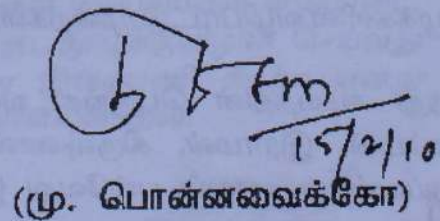 15/2/10
(மு. பொன்னவைக்கோ)